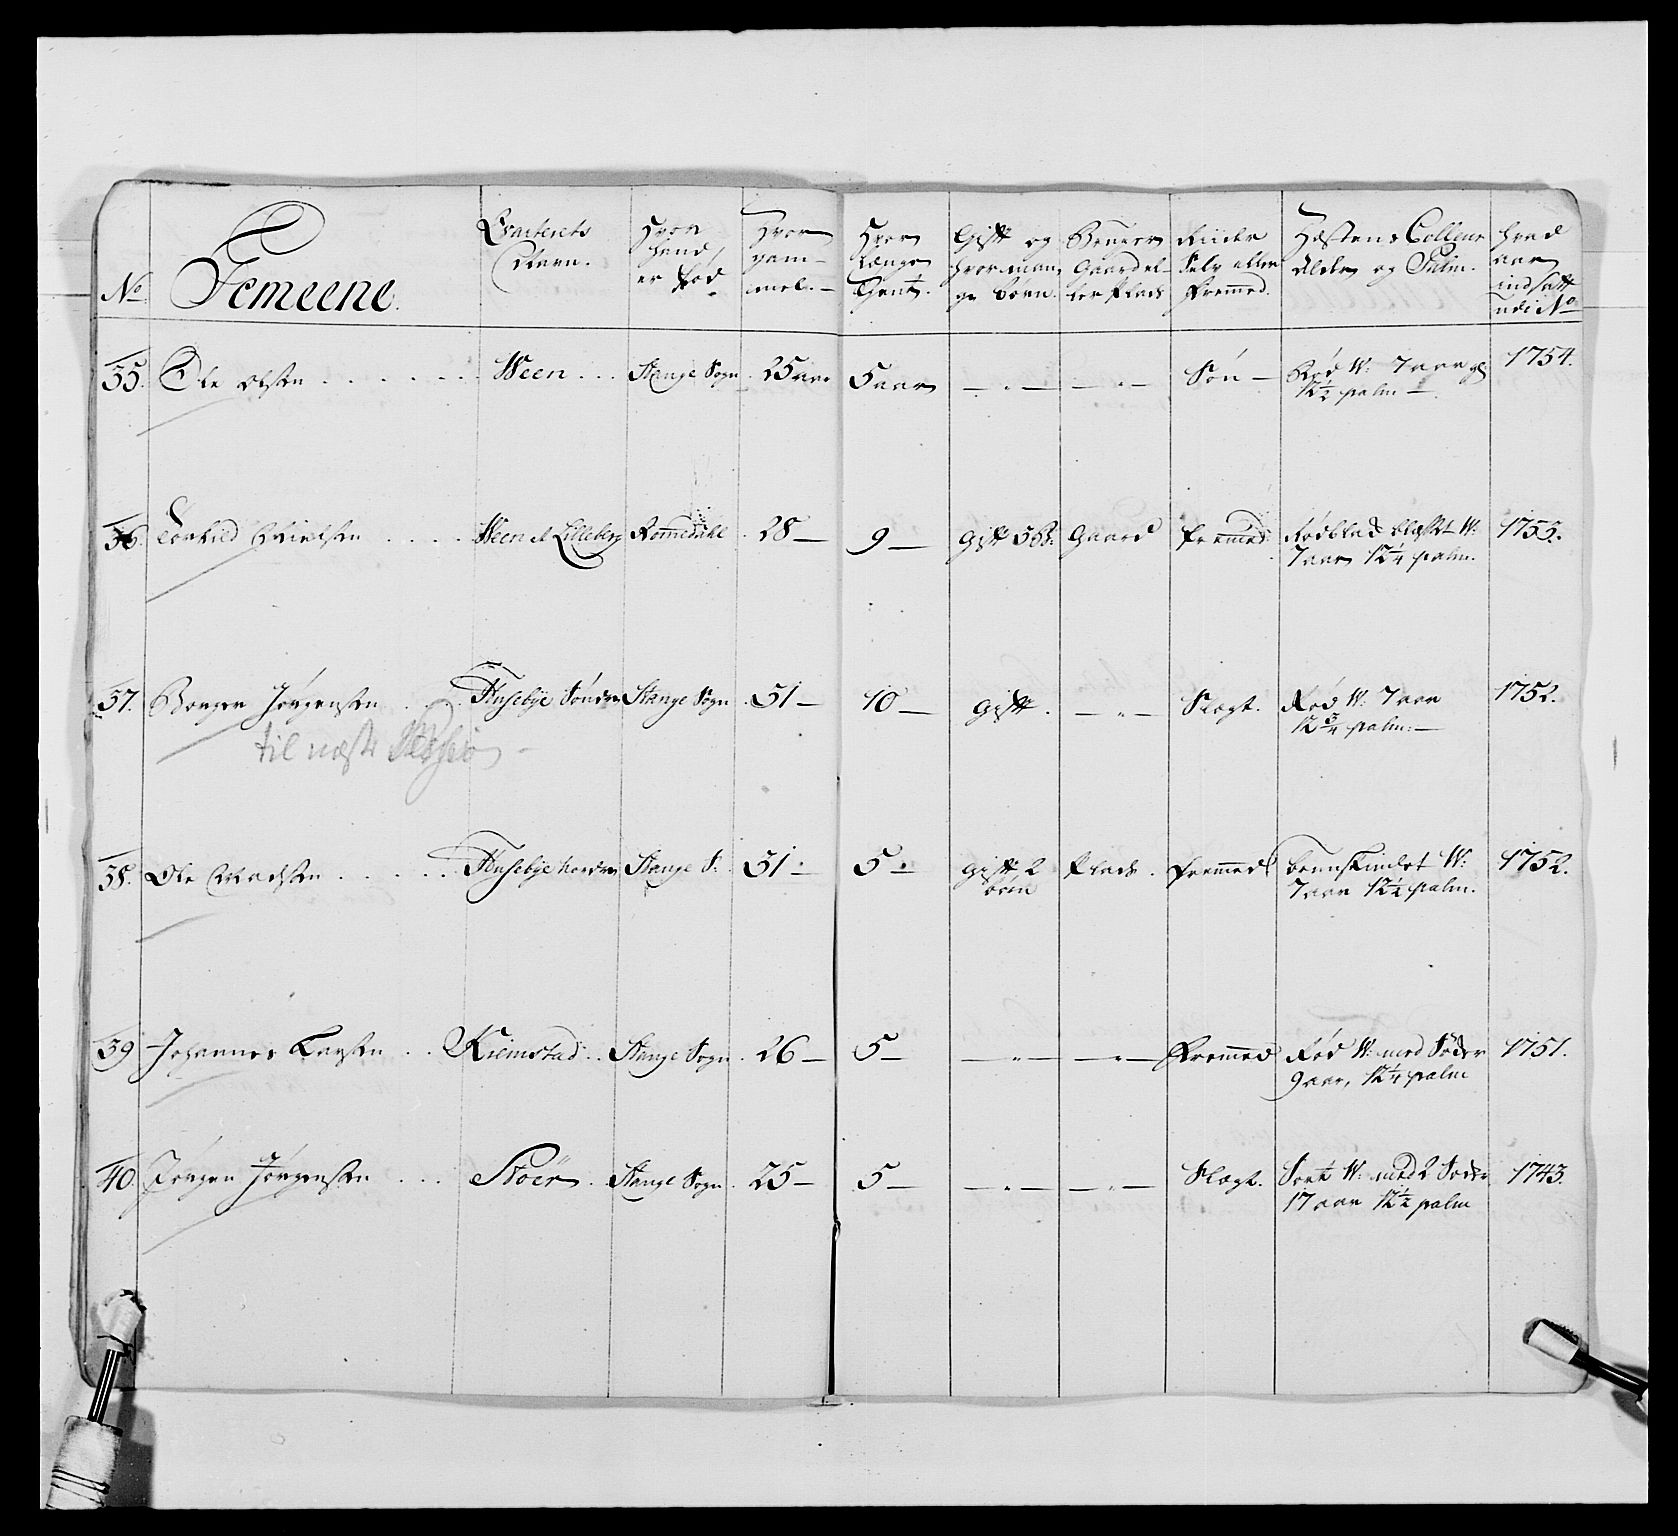 No
Gemeene.
Qvarterets Navn.
Hvor hand er fød
Hvor gam= mel.
Hvor Længe Tient.
Gift og hvor man= ge børn.
Bruger Gaard el= ler Plads
Ridder Selv eller fremmed.
Hæstens Colleur Alder og Palm.
hvad aar indsatt udi No
35. Ole Olsen Ween Stange Sogn 25 aar 5 aar — " — — " — Søn — Rød W: 7 aar gl: 1754.
12½ palm —
36. Ween et Lilleberg Rommedahl 28 — 9 — gift 3 b: Gaard fremmed Rødblad blisset W: 1753.
7 aar 12¼ palm.
37. Borger Jørgensen Husebye Søndre Stange Sogn 31 — 10 — gift — " — Slegt. Rød W: 7 aar 1752.
til næste Session — 12¾ palm: —
38. Ole Madsen Husebye nordre Stange S: 31 — 5 — gift 2 Plads fremmed W: 1752.
børn 7 aar 12¼ palm.
39 Johannes Larsen Kiemstad Stange Sogn 26 — 5 — — " — — " — Fremmed Rød W: med Soder 1751.
9 aar, 12¼ palm
40. Jørgen Jørgensen Stoer Stange Sogn 25 — 5 — — " — — " — Slegt. Sort W: med 2 Soder 1743.
17 aar 12½ palm